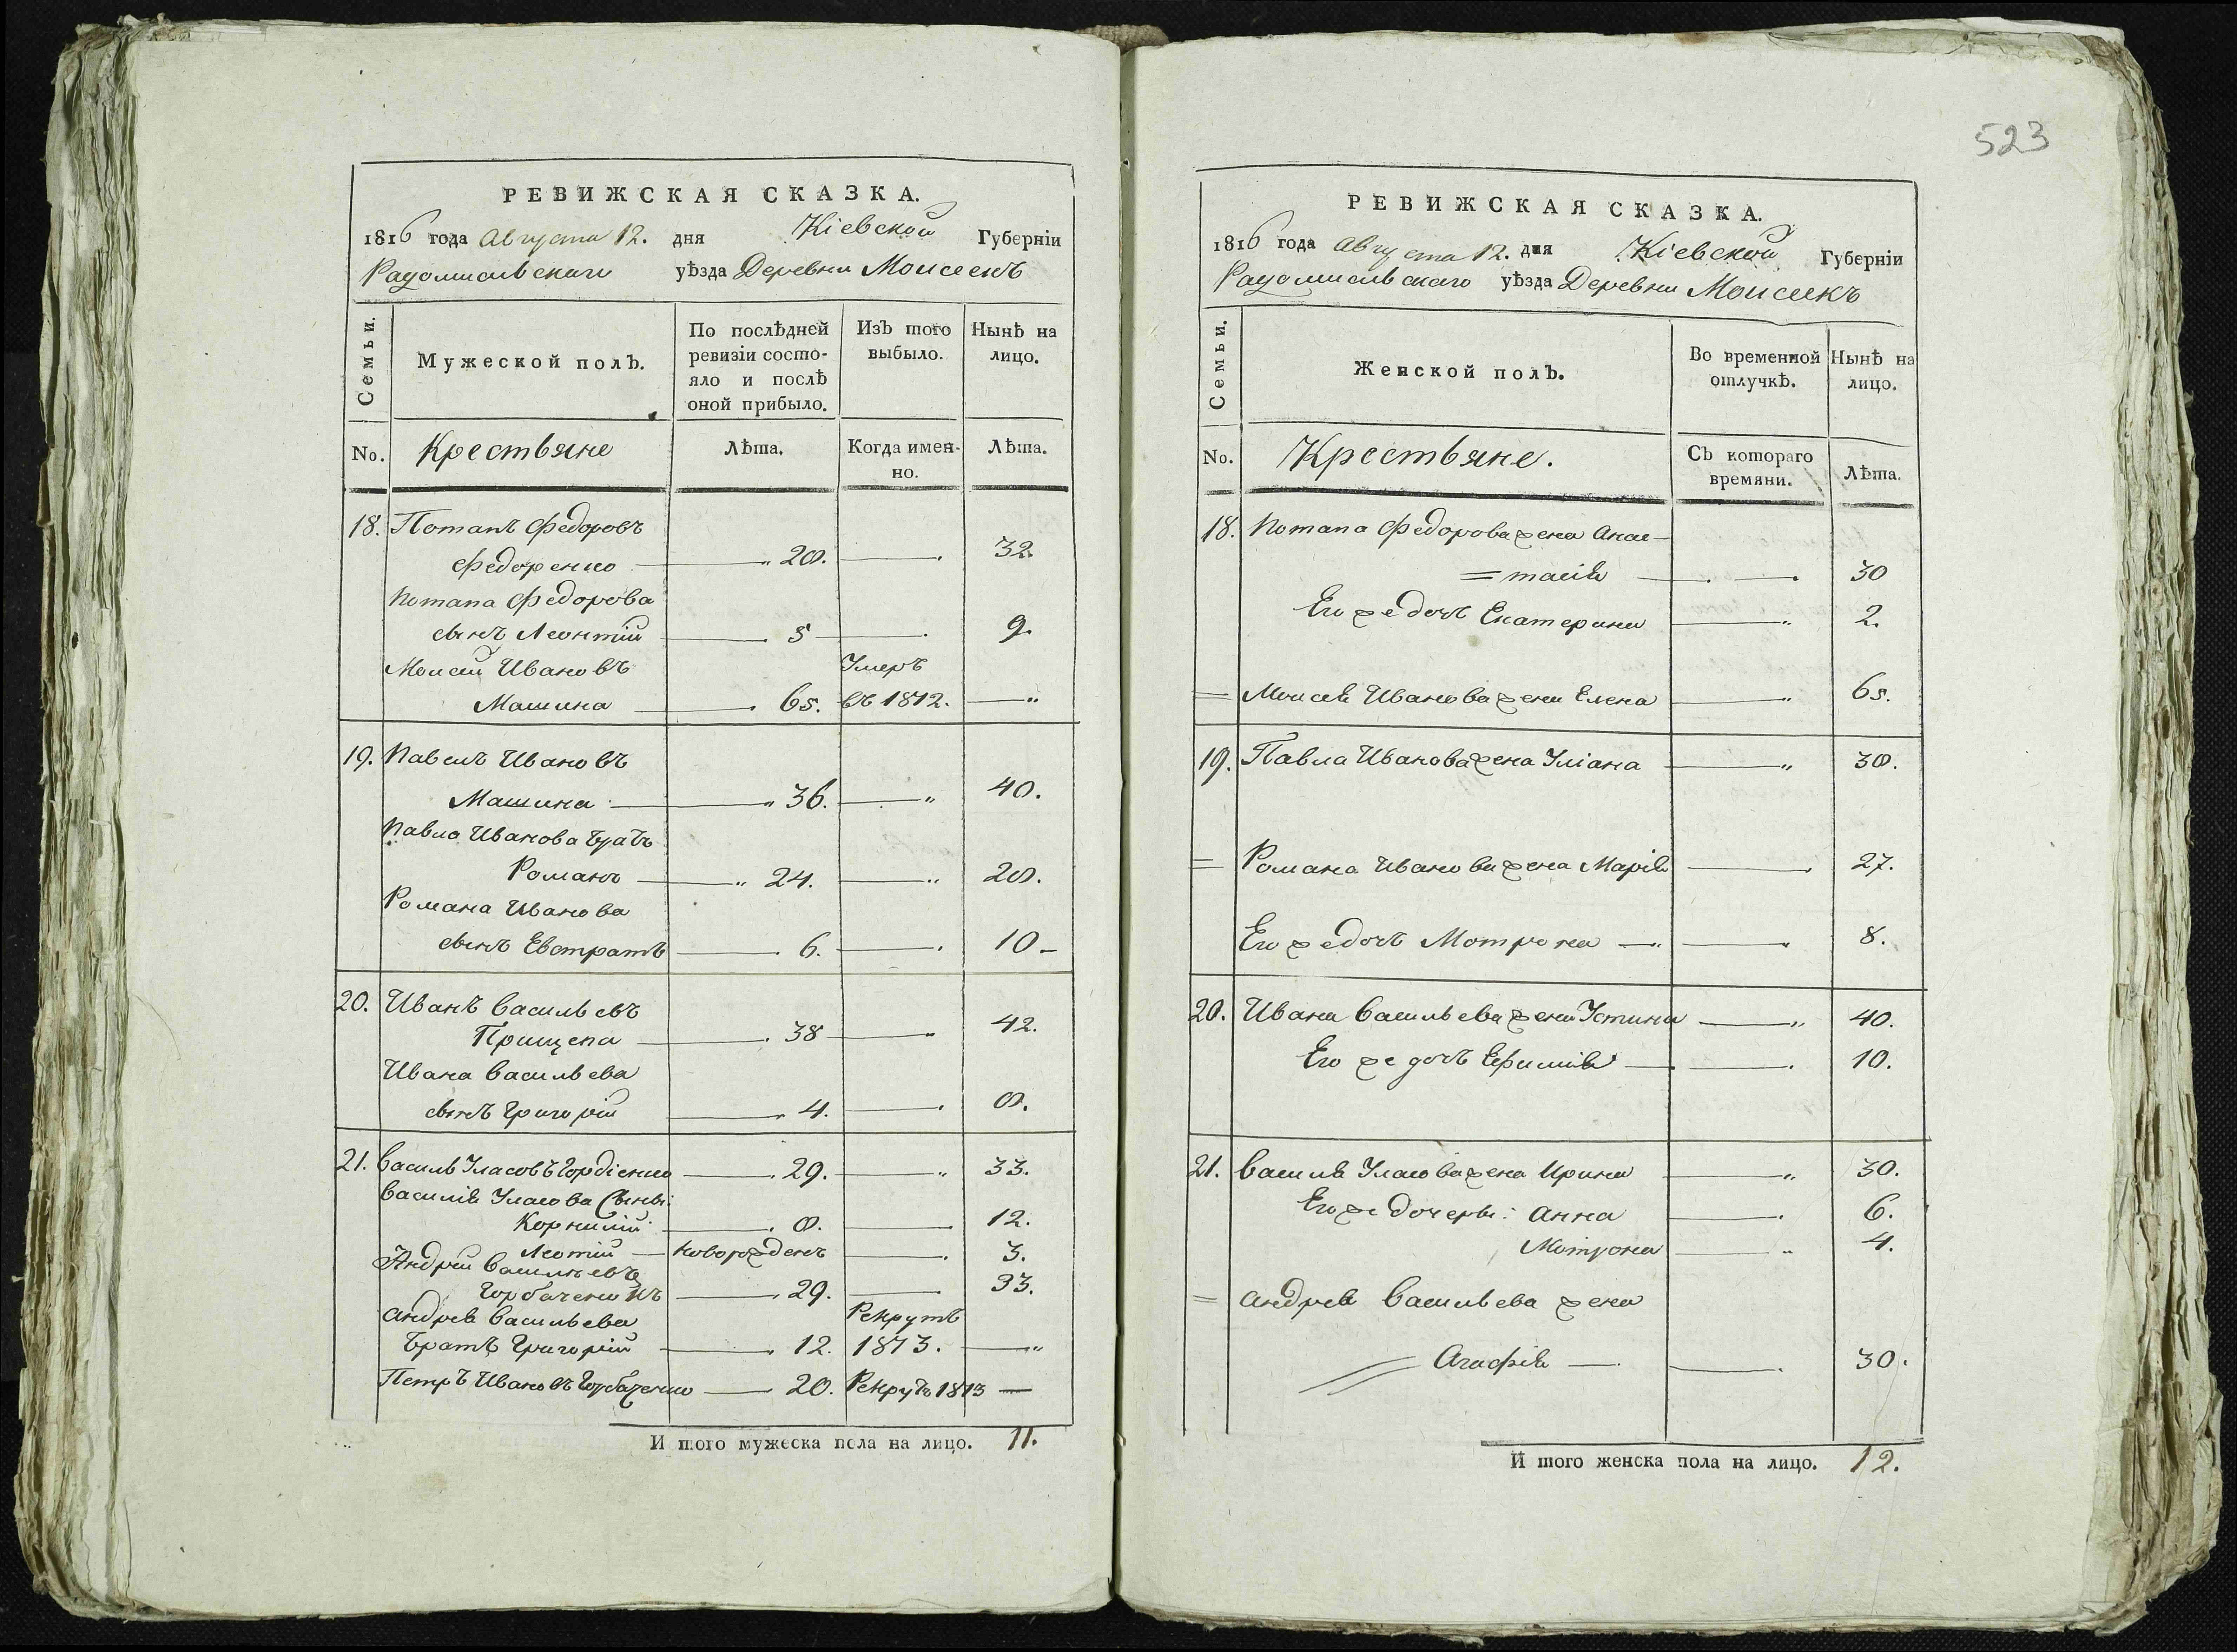 РЕВИЖСКАЯ СКАЗКА.
1816 года Августа 12. дня Кіевской Губерніи
Радомисльскаго уѣзда Деревни Моисеекъ
Семьи.
Мужеской полъ.
По послѣдней ревизіи состо-
яло и послѣ
оной прибыло.
Изъ того выбыло.
Нынѣ на лицо.
No. Крестьяне Лѣта. Когда имен-но. Лѣта.
18. Потапъ Федоровъ
Федоренко 28. 32.
Потапа Федорова
сынъ Леонтій 5 9.
Моисей Ивановъ Умеръ
Машина 65. въ 1812.
19. Павелъ Ивановъ
Машина 36. 40.
Павла Иванова братъ
Романъ 24. 28.
Романа Иванова
сынъ Евстратъ 6. 10
20. Иванъ Васильевъ
Прищепа 38 42.
Ивана Васильева
сынъ Григорій 4. 8.
21. Василь Уласовъ Гордіенко 29. 33.
Василія Уласова Сыны:
Корнилій 8. 12.
Леотій новорожденъ 3.
Андрей Васильевъ
29. 33.
Андрея Васильева Рекрутъ
братъ Григорій 12. 1813.
Петръ Ивановъ Горбаченко 20. Рекрутъ 1813
И того мужеска пола на лицо. 11.
523
РЕВИЖСКАЯ СКАЗКА.
1816 года Августа 12. дня Кіевской Губерніи
Радомисльскаго уѣзда Деревни Моисеекъ
Семьи.
Женской полъ.
Во временной отлучкѣ.
Нынѣ на лицо.
No. Крестьяне. Съ котораго времяни. Лѣта.
18. Потапа Федорова жена Анас-
=тасія 30
Его же дочь Екатерина 2.
= Моисея Иванова жена Елена 65.
19. Павла Иванова жена Уліана 38.
= Романа Иванова жена Марія 27.
Его же дочь Мотрона 8.
20. Ивана Васильева жена Устина 40.
Его же дочь Ефимія 10.
21. Василя Уласова жена Ирина 30.
Его же дочеры: Анна 6.
Мотрона 4.
= Андрея Васильева жена
Агафія 30.
И того женска пола на лицо. 12.